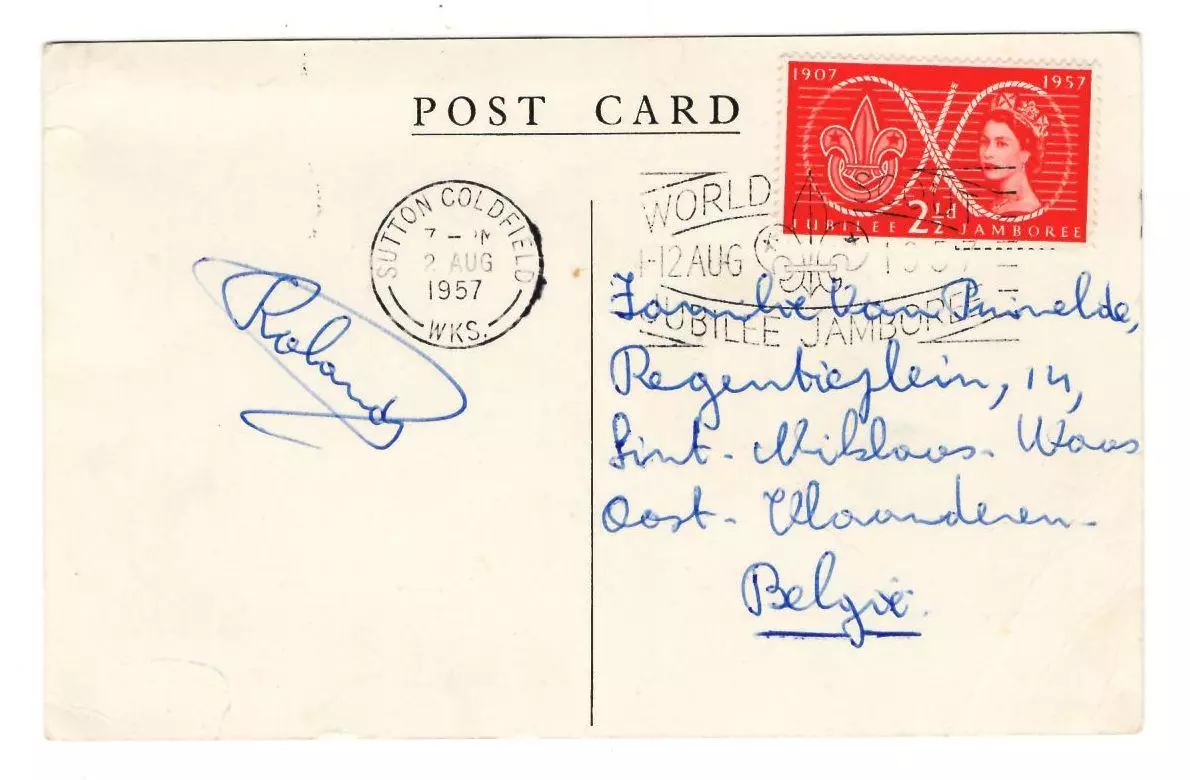 1907 1957
POST CARD
JUBILEE 2½d JAMBOREE
SUTTON COLDFIELD
7 -
2 AUG
1957
WKS.
WORLD SCOUT
1-12 AUG 1957
JUBILEE JAMBOREE
Roland
Familie Van Puivelde,
Regentieplein, 14,
Sint-Niklaas-Waas
Oost-Vlaanderen-
België.